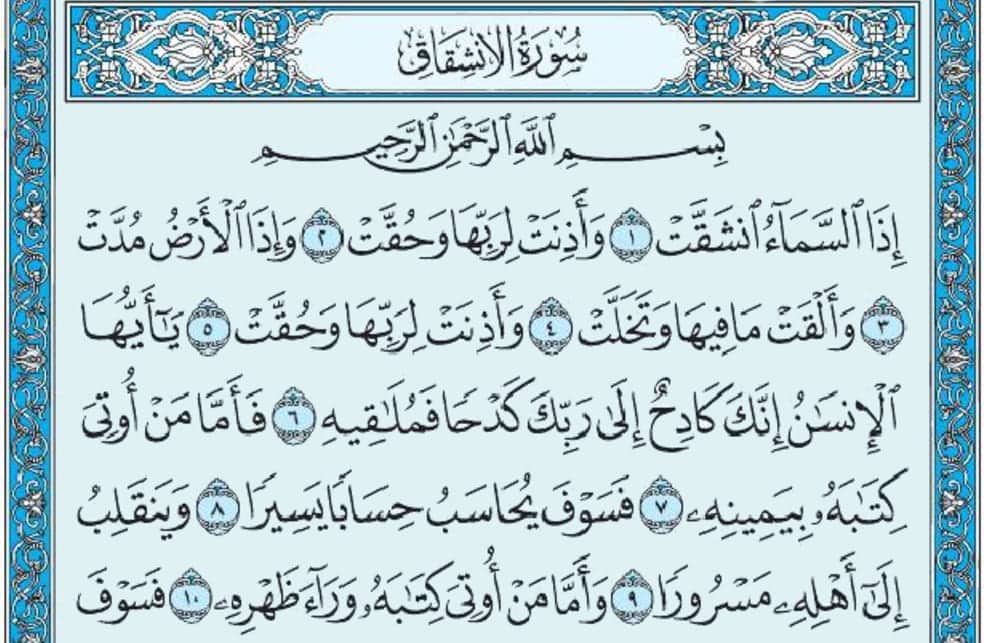 سُورَةُ الانشِقَاقِ
بِسْمِ ٱللَّهِ ٱلرَّحْمَٰنِ ٱلرَّحِيمِ
إِذَا ٱلسَّمَآءُ ٱنشَقَّتْ ١ وَأَذِنَتْ لِرَبِّهَا وَحُقَّتْ ٢ وَإِذَا ٱلْأَرْضُ مُدَّتْ
٣ وَأَلْقَتْ مَا فِيهَا وَتَخَلَّتْ ٤ وَأَذِنَتْ لِرَبِّهَا وَحُقَّتْ ٥ يَٰٓأَيُّهَا
ٱلْإِنسَٰنُ إِنَّكَ كَادِحٌ إِلَىٰ رَبِّكَ كَدْحًا فَمُلَٰقِيهِ ٦ فَأَمَّا مَنْ أُوتِيَ
كِتَٰبَهُۥ بِيَمِينِهِۦ ٧ فَسَوْفَ يُحَاسَبُ حِسَابًا يَسِيرًا ٨ وَيَنقَلِبُ
إِلَىٰٓ أَهْلِهِۦ مَسْرُورًا ٩ وَأَمَّا مَنْ أُوتِيَ كِتَٰبَهُۥ وَرَآءَ ظَهْرِهِۦ ١٠ فَسَوْفَ